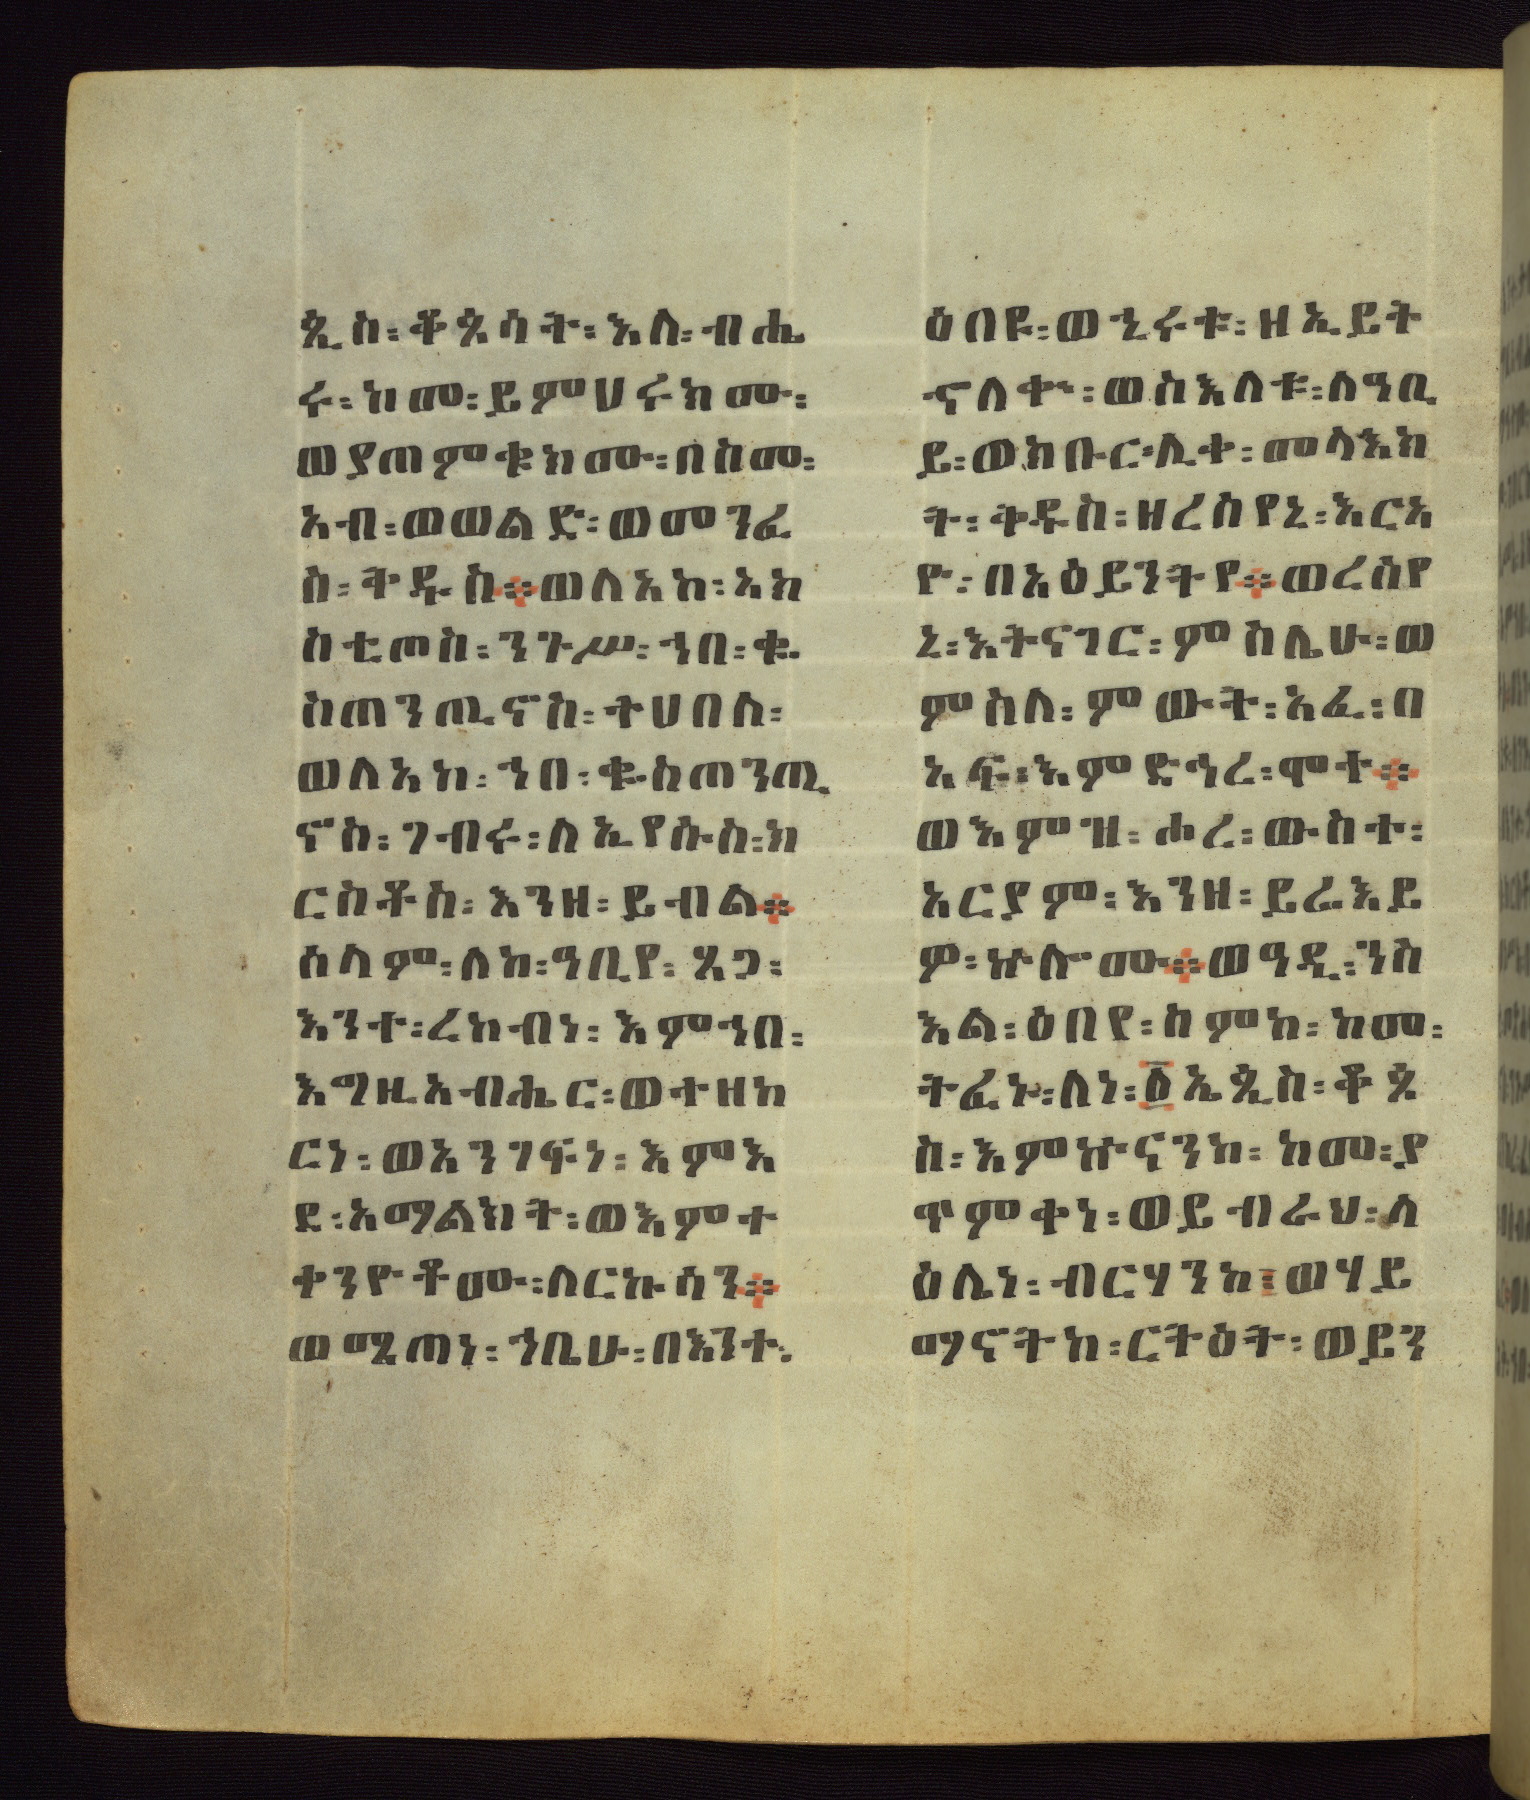 ጲስ፡ቆጶሳት፡እለ፡ብሔ
ሩ፡ከመ፡ይምህሩክሙ፡
ወያጠምቁክሙ፡በስመ፡
አብ፡ወወልድ፡ወመንፈ
ስ፡ቅዱስ።ወለአከ፡አክ
ስቲጦስ፡ንጉሥ፡ኀበ፡ቈ
ስጠንጢኖስ፡ተሀበለ፡
ወለአከ፡ኀበ፡ቈስጠንጢ
ኖስ፡ገብሩ፡ለኢየሱስ፡ክ
ርስቶስ፡እንዘ፡ይብል።
ሰላም፡ለከ፡ዓቢየ፡ጸጋ፡
እንተ፡ረከብነ፡እምኀበ፡
እግዚአብሔር፡ወተዘከ
ርነ፡ወአንገፍነ፡እምእ
ደ፡አማልክት፡ወእምተ
ቀንዮቶሙ፡ለርኩሳን።
ወሜጠነ፡ኀቤሁ፡በእንተ፡
ዕበዩ፡ወኂሩቱ፡ዘኢይት
ኖለቍ፡ወስእለቱ፡ለዓቢ
ይ፡ወክቡር፡ሊቀ፡መላእክ
ት፡ቅዱስ፡ዘረሰየኒ፡እርአ
ዮ፡በአዕይንትየ።ወረሰየ
ኒ፡እትናገር፡ምስሌሁ፡ወ
ምስለ፡ምውት፡አፈ፡በ
አፍ፡እምድኅረ፡ሞተ።
ወእምዝ፡ሐረ፡ውስተ፡
አርያም፡እንዘ፡ይሬእይ
ዎ፡ኵሎሙ።ወዓዲ፡ንስ
እል፡ዕበየ፡ስምከ፡ከመ፡
ትፈኑ፡ለነ፡፩ኤጲስ፡ቆጶ
ስ፡እምኵናንከ፡ከመ፡ያ
ጥምቀነ፡ወይብራህ፡ላ
ዕሌነ፡ብርሃንከ፡ወሃይ
ማኖትከ፡ርትዕት፡ወይን